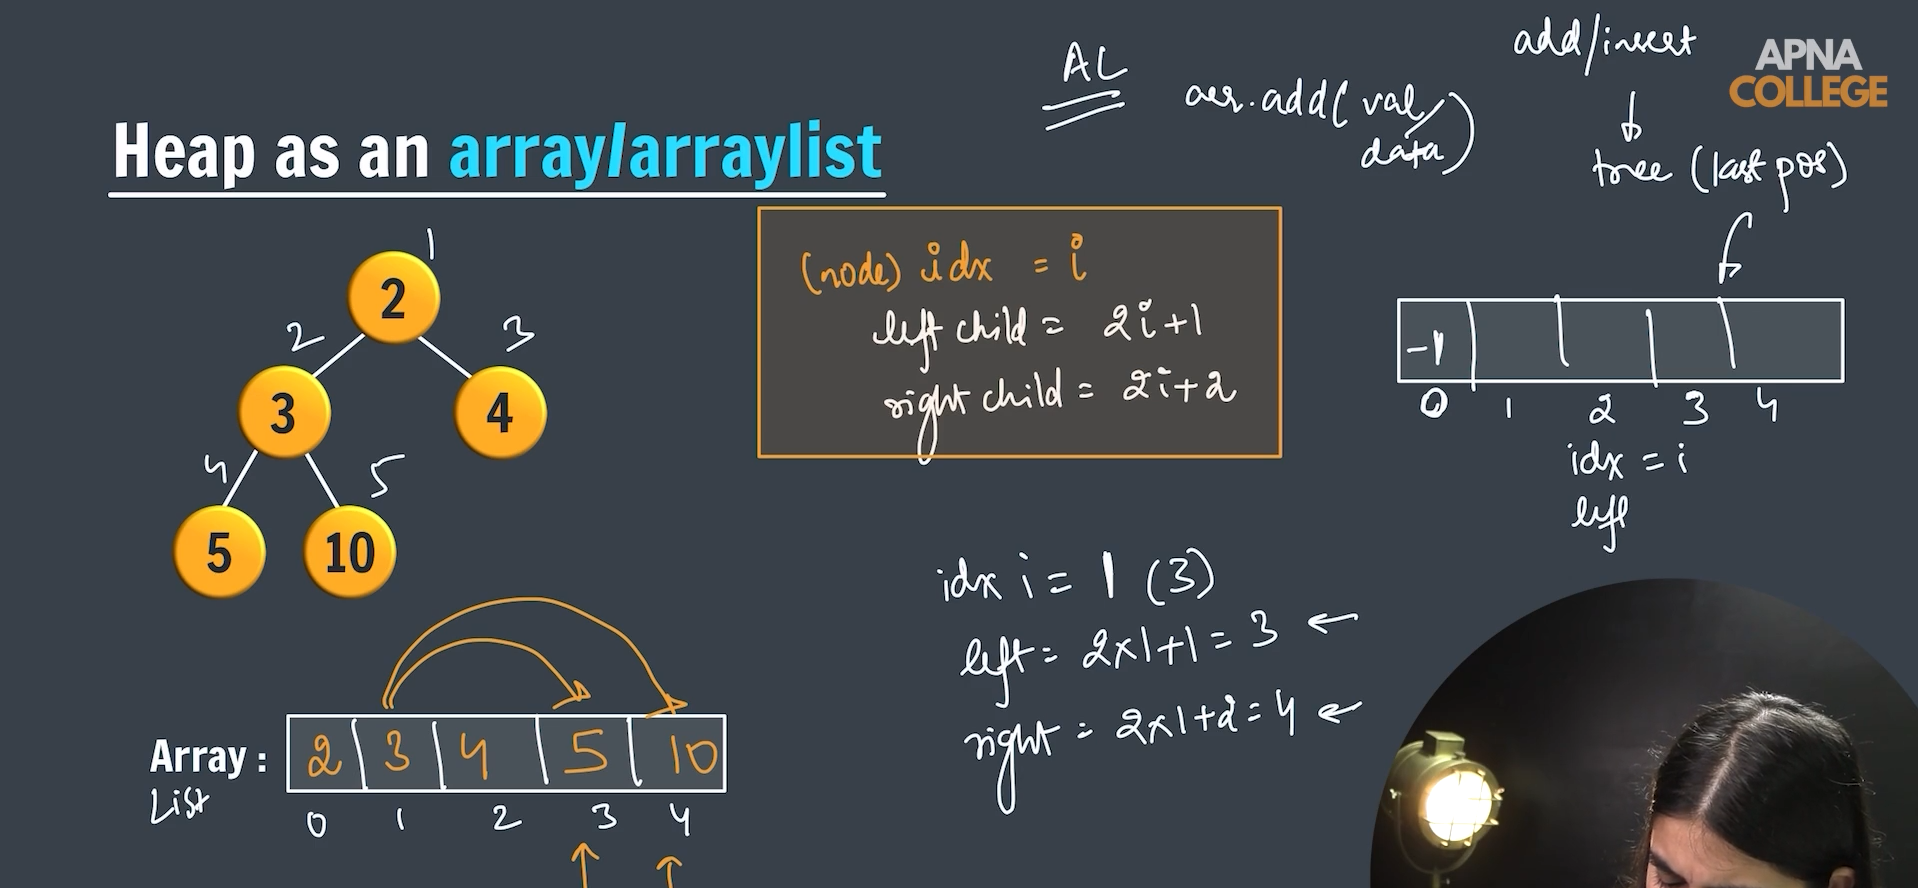 APNA
COLLEGE
Heap as an array/arraylist
AL
arr.add(val/
data)
add/insert
tree (last pos)
1
2
2 3
3 4
4 5
5 10
(node) idx = i
left child = 2i+1
right child = 2i+2
-1
0 1 2 3 4
idx = i
left
idx i = 1 (3)
left = 2x1+1 = 3 ←
right = 2x1+2 = 4 ←
Array : 2 3 4 5 10
List
0 1 2 3 4